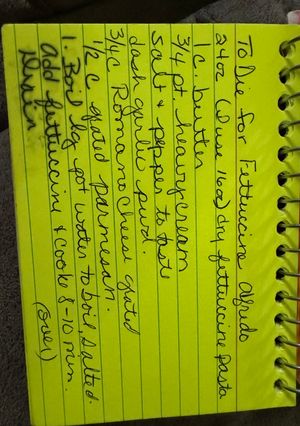 To Die for Fettuccine Alfredo
24oz (I use 16oz) dry fettuccine pasta
1 c. butter
3/4 pt. heavy cream
salt & pepper to taste
dash garlic pwd.
3/4 c Romano cheese grated
1/2 c grated parmesan.
1. Boil lg pot water to boil, salted.
add fettuccine & cook 8-10 min.
Drain
(over)